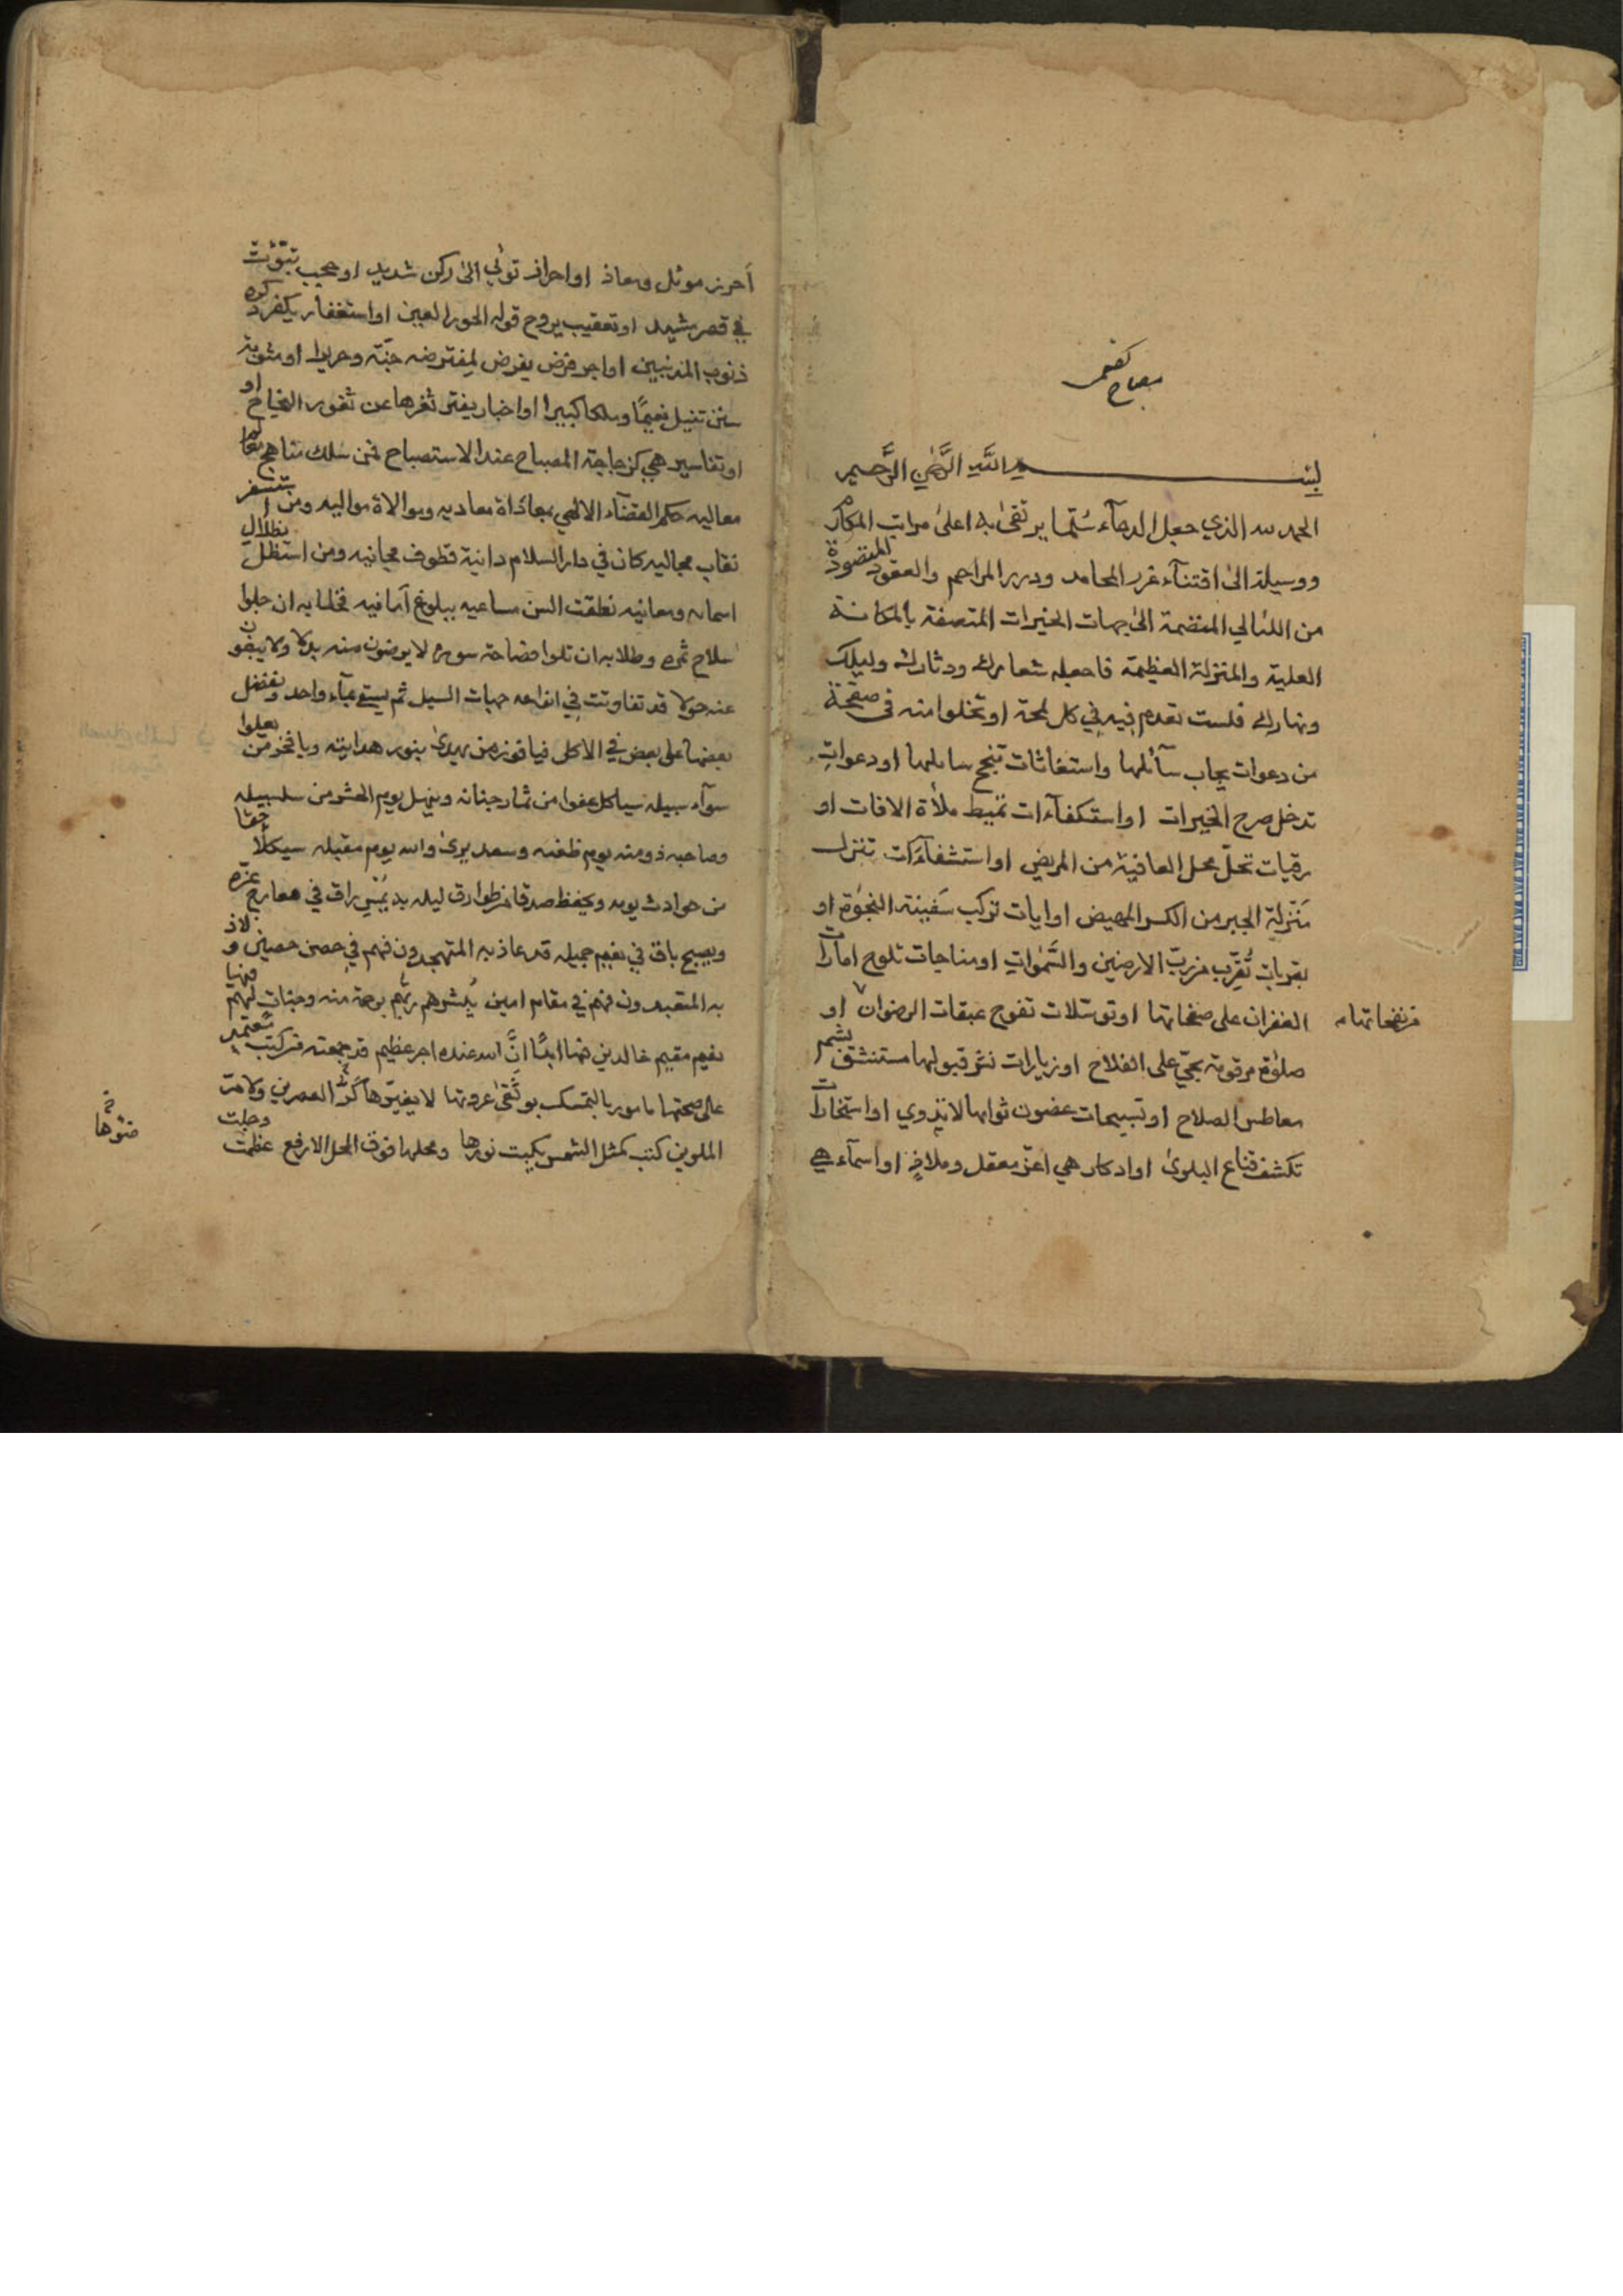 مصباح كفعمى
بسم الله الرحمن الرحيم
الحمد لله الذي جعل الدعآء سُلّما يرتقىٰ به اعلىٰ مراتب المكارم
ووسيلة الىٰ اقتنآء غرر المحامد ودرر المراحم والعقود المنضودة
من اللئالي المنضمة الىٰ جهات الخيرات المتصفة بالمكانة
العلية والمنزلة العظيمة فاجعله شعارك ودثارك وليلك
ونهارك فلست تعدم فيه في كل لمحة او تخلوا منه فى صفحة
من دعوات يجاب سآئلها واستغاثات تنجح سايلها او دعواتٍ
تدخل صرح الخيرات او استكفآءات تميط ملأة الافات او
رقيات تحلّ محل العافية من المريض او استشفآءَات تنزل
مَنْزلة الجبر من الكسر المهيض او ايات تركب سَفينة النجوٰة او
بقربات تُقرّب من ربّ الارضين والسَّمٰوات او مناجات تلوح امارات
الغفران على صفحاتها او توسّلات تفوح عبقات الرضوان او
من نفحاتها
صلوٰة مرقومة بحيّ على الفلاح او زيارات نشر قبولها مستنشق بشم
معاطس الصلاح او تسبيحات غصون ثوابها لا تذوي او استخارات
تكشف قناع البلوىٰ او اذكار هي اعزّ معقل وملاذٍ او اسمآء هي
أحرز موئل ومعاذ او احراز تؤي الىٰ ركن شديد او حجب تبوّئت
في قصر مشيد او تعقيب يروح قوله الحور العين او استغفار يكفر ذكره
ذنوب المذنبين او اجر فرض يفرض لمفترضه جنّة وحريرا او مثوبة
سنن تنيل نعيمًا وملكا كبيرا او اخبار يفتر ثغرها عن ثغور النجاح او
او تفاسير هي كزجاجة المصباح عند الاستصباح فمن سلك مناهج معالم
معاليه حكم القضآء الالهي بمعاداة معاديه وموالاة مواليه ومن استسفر
نقاب مجاليه كان في دار السلام دانية قطوف مجانيه ومن استظل بظلال
اسمائه ومعانيه نطقت السن مساعيه ببلوغ امانيه فخطابه ان جلوا
سلاح ثمره وطلابه ان تلوا فصاحة سوره لا يرضون منه بدلا ولا يبغون
عنه حولا قد تفاوتت في انواعه جهات السبل ثم يسقىٰ بمآء واحد ونفضل
بعضها على بعض في الاكل فيا فوز من يهدىٰ بنور هدايته ويا فخر من يعلوا
سوآء سبيله سياكل عفوا من ثمار جنانه وينهل يوم الحشر من سلسبيله
وصاحبه ذو منه يوم ظعنه وسعد يرىٰ والله يوم مقيله سيكلأ حقا
من حوادث يومه ويحفظ صدقا من طوارق ليله به يمسي راق في معارج عزّه
ويصبح باق في نعيم جميله قد عاذ به المتهجدون فهم في حصن حصين ولاذ
به المتعبدون فهم في مقام امين يُبشرهم ربّهم برحمة منه وجنات لهم فيها
نعيم مقيم خالدين فيها ابدًا انَّ الله عنده اجر عظيم قد جمعته من كتب مُعتمدٍ
على صحتها مامور بالتمسك بوثقىٰ عروتها لا يغيّرها كرّ العصرين ولا مرّ
الملوين كتب كمثل الشمس يكبت نورها ومحلها فوق المحل الارفع عظمت وجلت
ضوئها